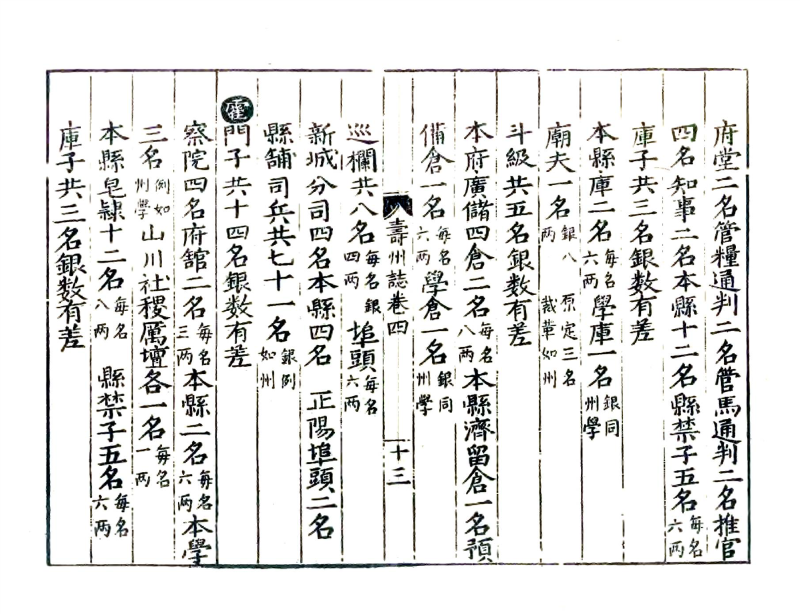 府堂二名管糧通判二名管馬通判二名推官
四名知事二名本縣十二名縣禁子五名每名六两
庫子共三名銀数有差
本縣庫二名每名六两學庫一名銀同州學
廟夫一名銀八两原定三名裁革如州
斗級共五名銀数有差
本府廣儲四倉二名每名八两本縣濟留倉一名預
備倉一名每名六两學倉一名銀同州學
壽州誌卷四 十三
巡欄共八名每名銀四两埠頭每名六两
新城分司四名本縣四名 正陽埠頭二名
縣舖司兵共七十一名銀例如州
霍門子共十四名銀数有差
察院四名府舘二名每名三两本縣二名每名六两本學
三名例如州學山川社稷厲壇各一名每名一两
本縣皂隸十二名每名八两 縣禁子五名每名六两
庫子共三名銀数有差